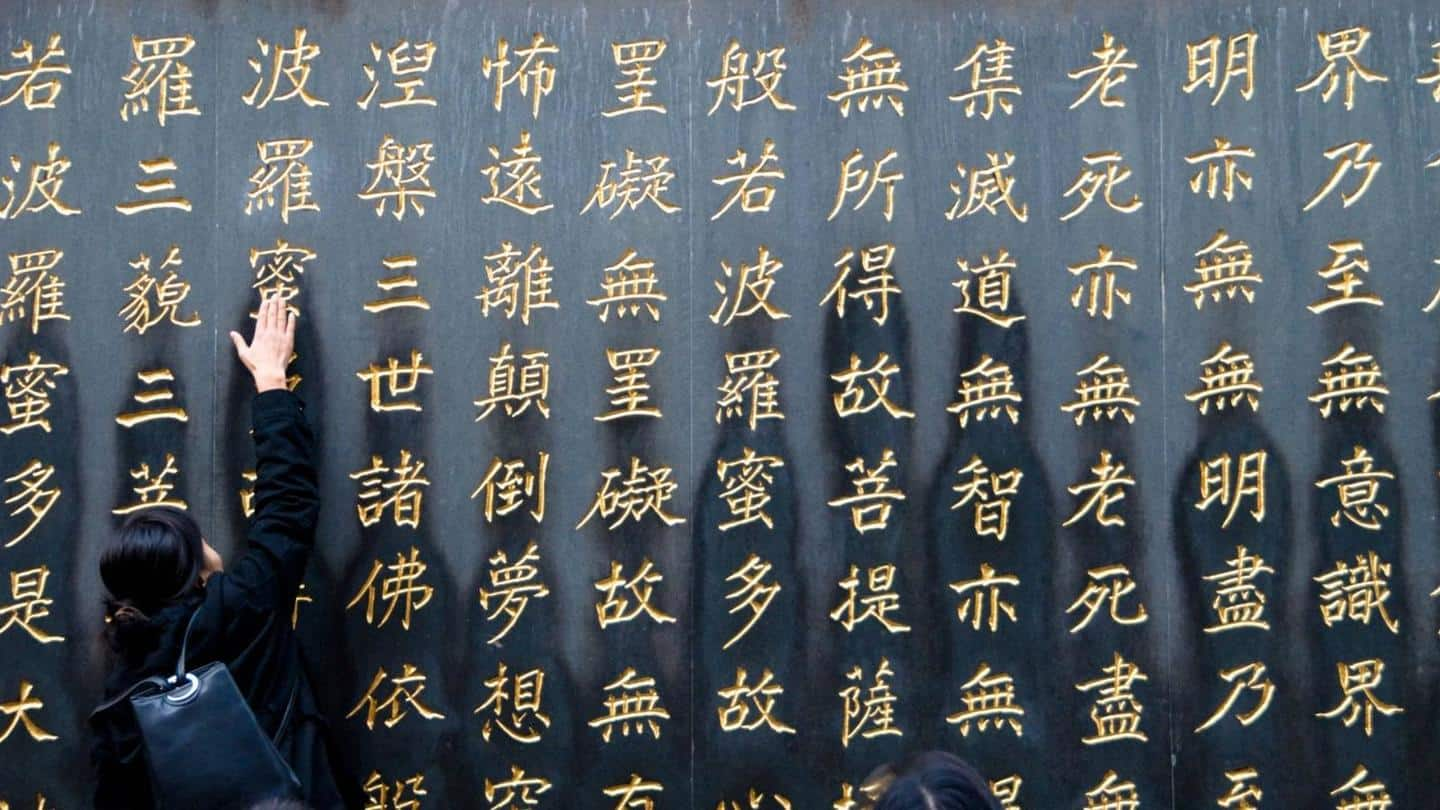 界乃至無意識界無
明亦無無明盡乃至
老死亦無老死盡無
集滅道無智亦無得
無所得故菩提薩
般若波羅蜜多故心
罣礙無罣礙故無有
怖遠離顛倒夢想
涅槃三世諸佛依般
波羅蜜
羅三藐三
若波羅蜜多是大